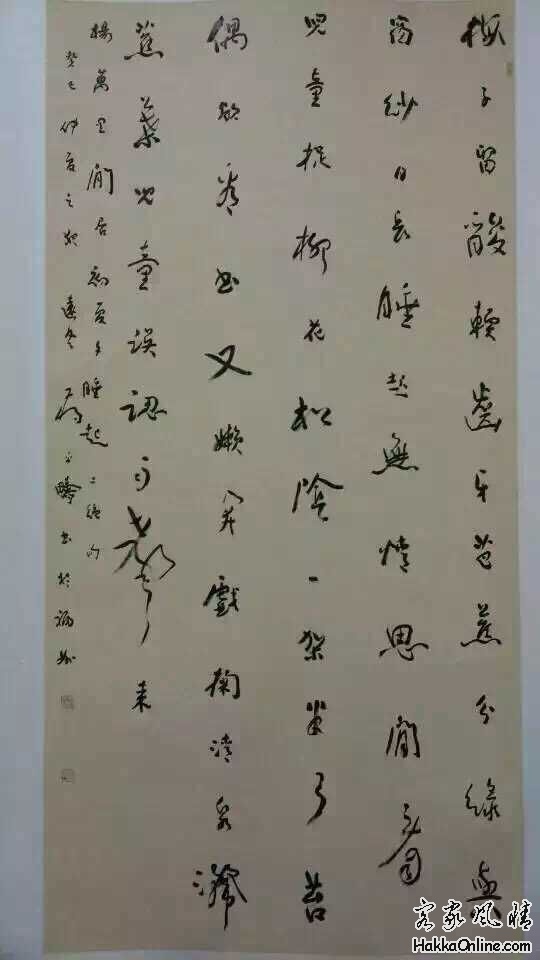 梅子留酸輭齒牙芭蕉分綠與
窗紗日長睡起無情思閒看
兒童捉柳花松陰一架半弓苔
偶欲看書又懶開戲掬清泉灑
蕉葉兒童誤認雨聲來
楊萬里閒居初夏午睡起二絕句
癸巳仲夏之初 書於
客家風情
HakkaOnline.com